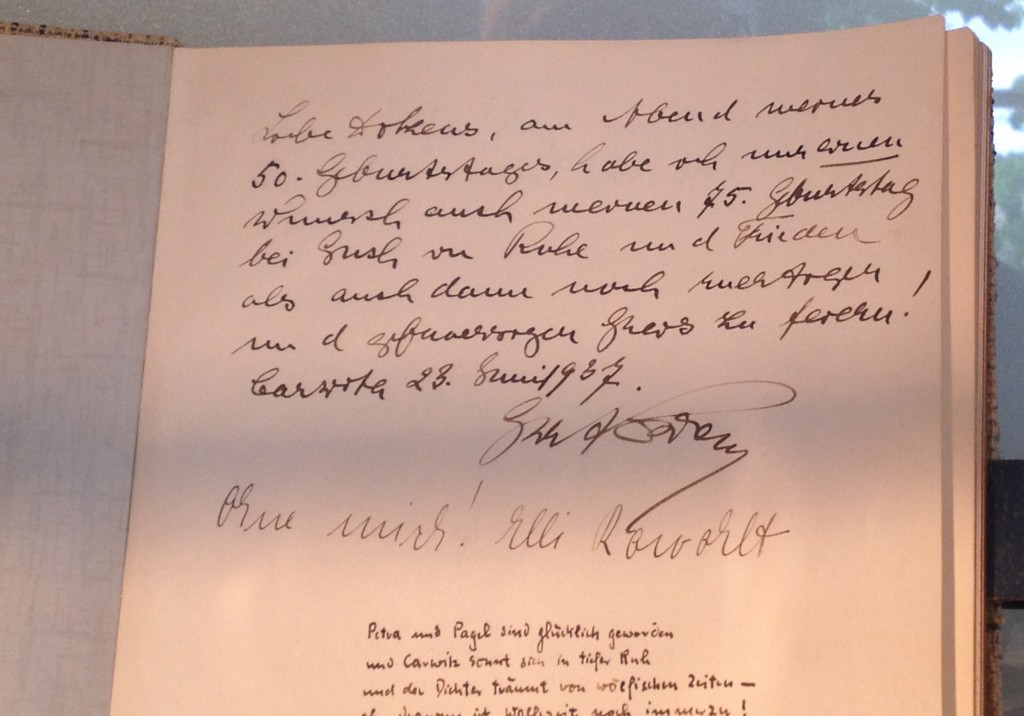 Liebe Ditzens, am Abend meines
50. Geburtstages, habe ich nur einen
Wunsch auch meinen 75. Geburtstag
bei Euch in Ruhe und Frieden
als auch dann noch
und Greis zu feiern!
Carwitz 23. Juni 1937.
Ohne mich! Elli Rowohlt
Petra und Pagel sind glücklich geworden
und Carwitz sonnt sich in tiefer Ruh
und der Dichter träumt von wölfischen Zeiten —
ist Wolfszeit noch immerzu!